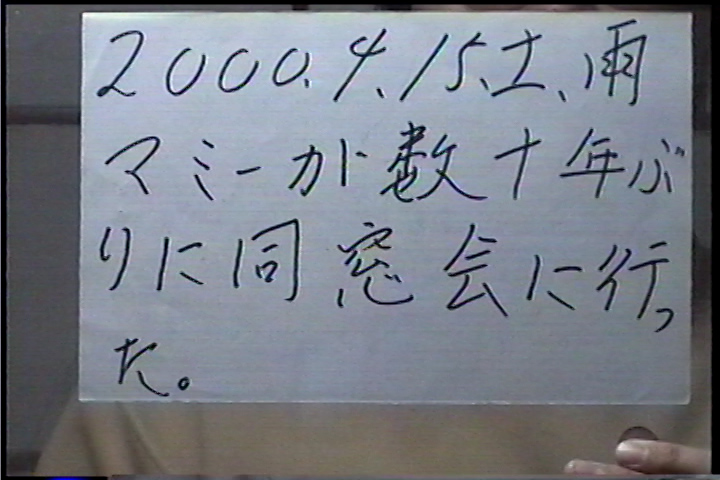 2000.4.15.土、雨
マミーが数十年ぶ
りに同窓会に行っ
た。